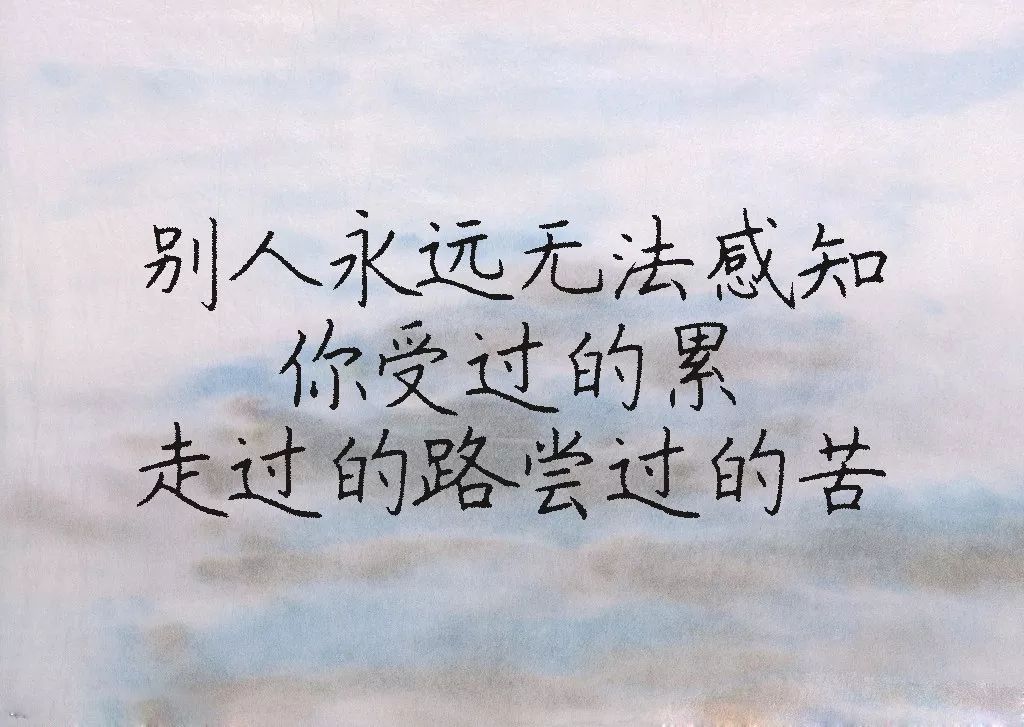 别人永远无法感知
你受过的累
走过的路尝过的苦